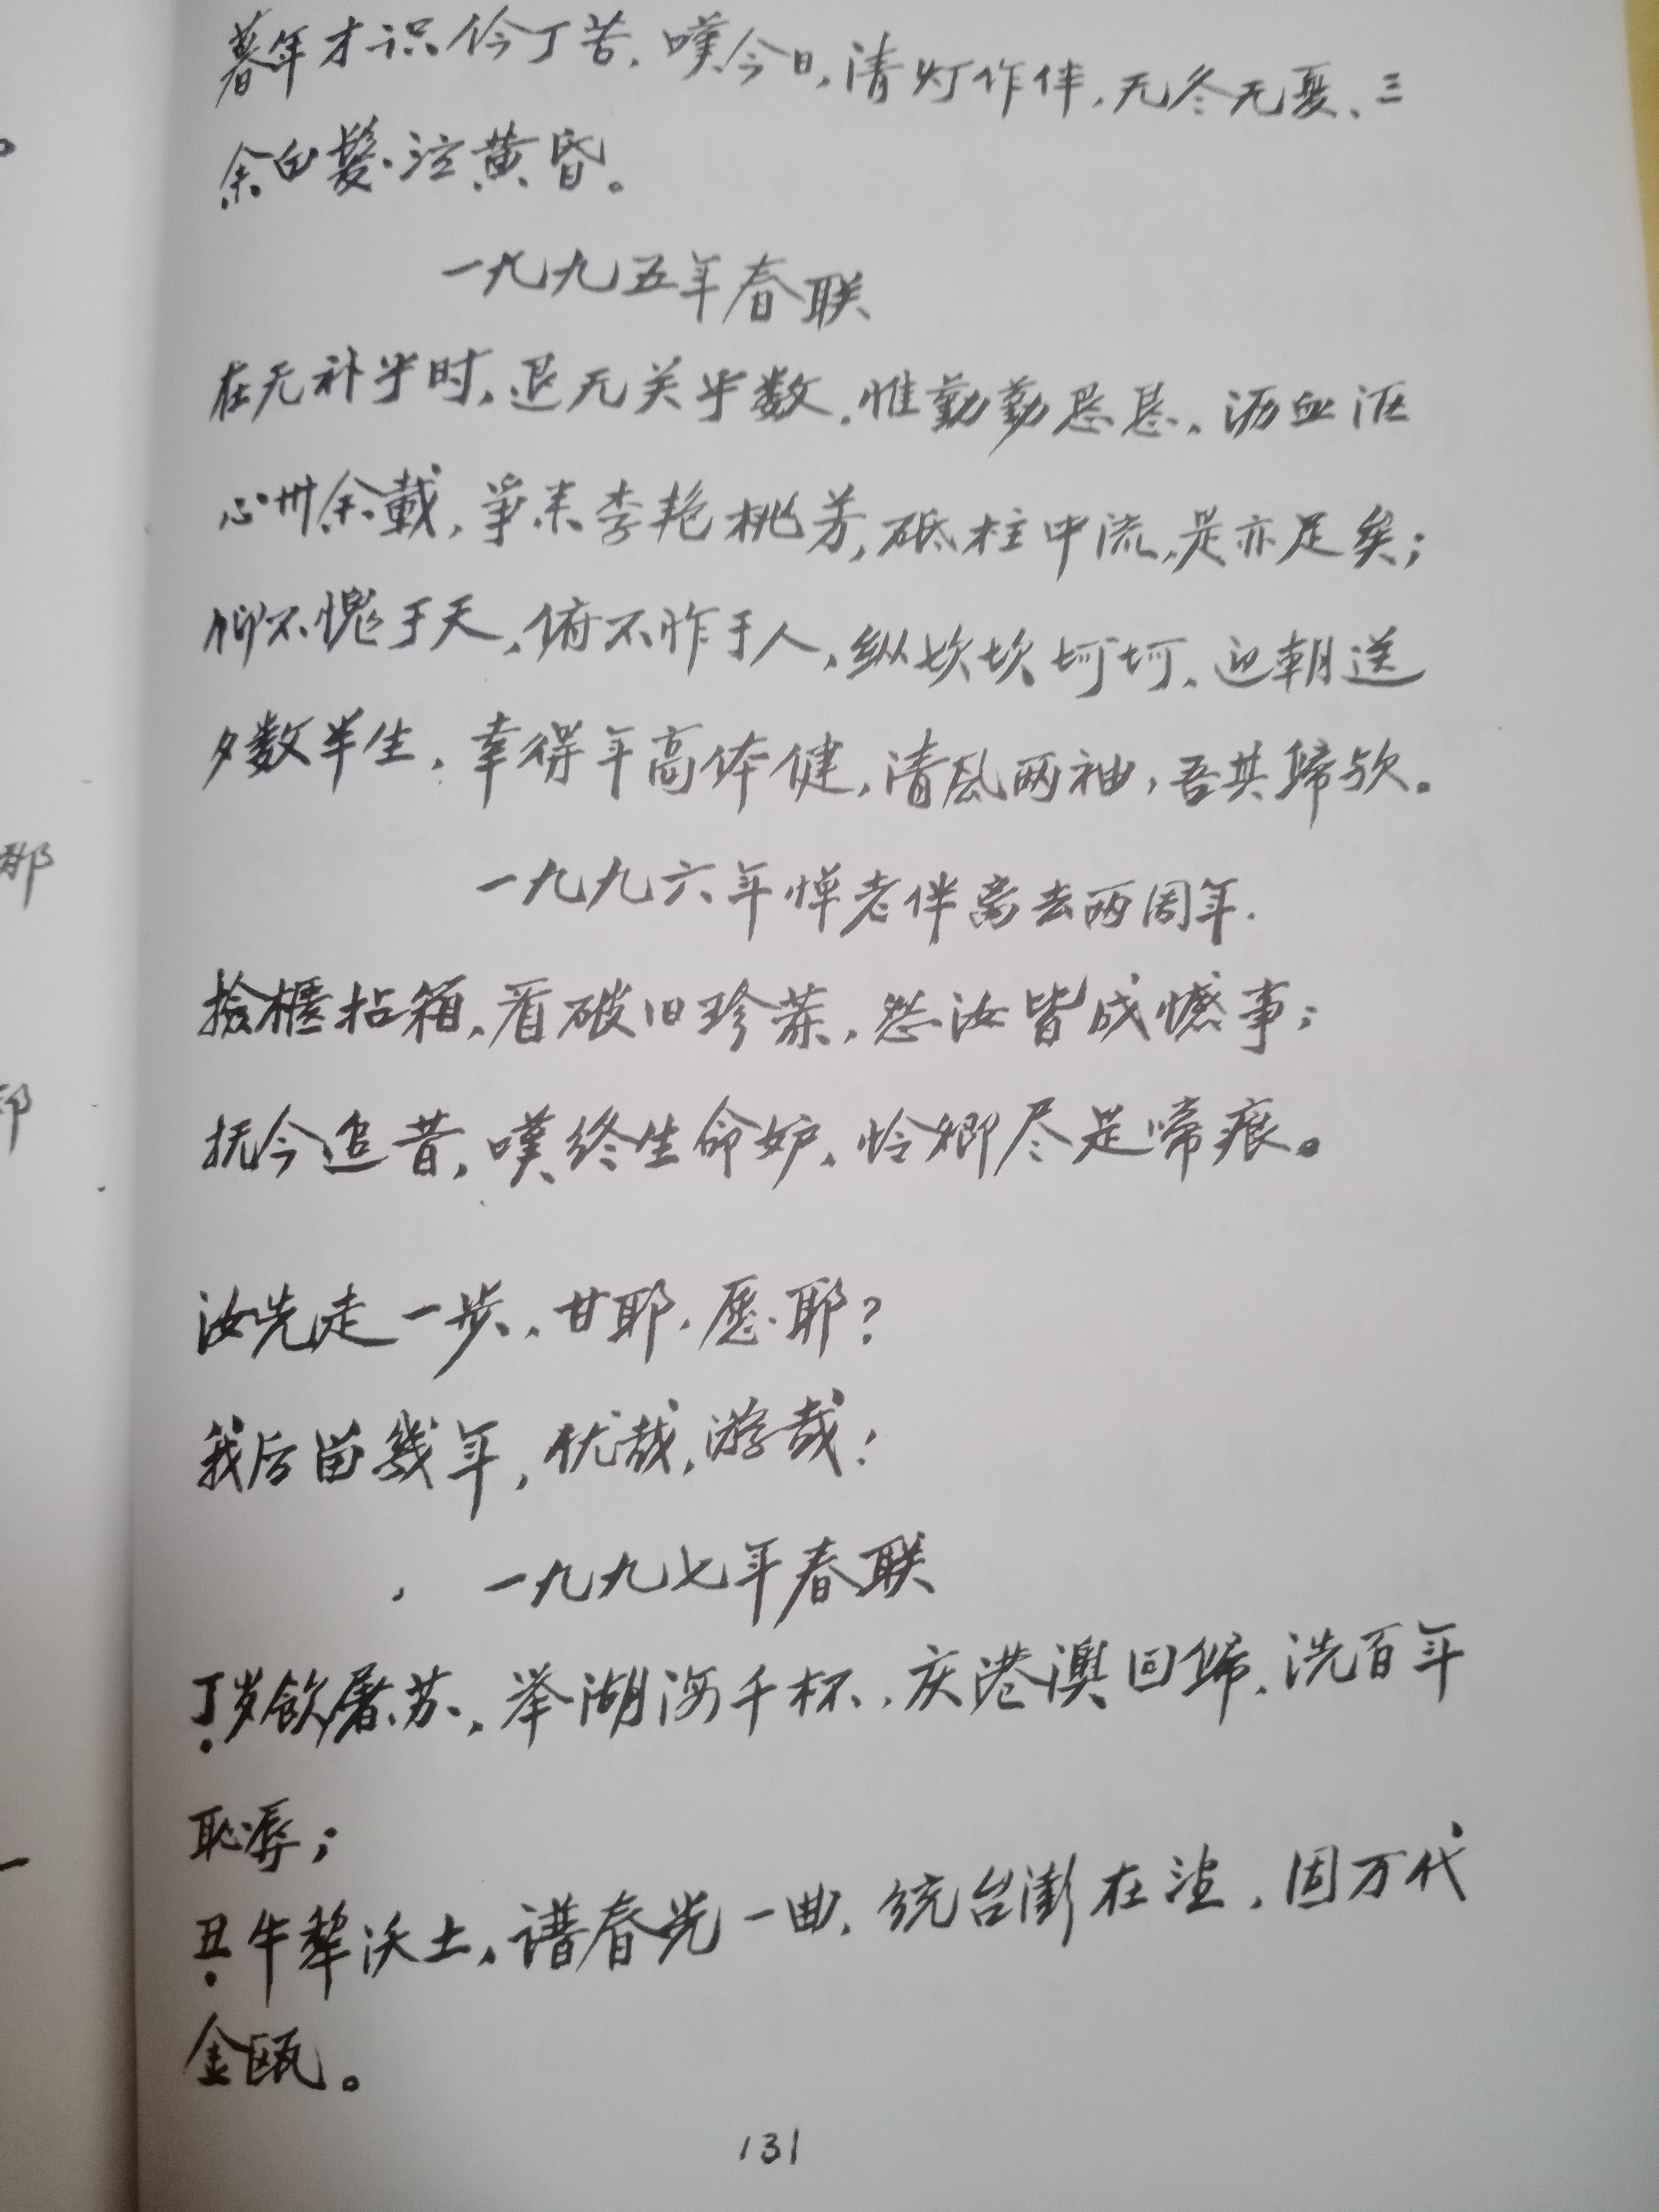 暮年才识伶丁苦，嘆今日，清灯作伴，无冬无夏、三
余白髮泣黄昏。
一九九五年春联
在无补乎时，退无关乎数，惟勤勤恳恳，沥血沤
心卅余載，爭来李艳桃芳，砥柱中流，是亦足矣；
仰不愧于天，俯不怍于人，纵坎坎坷坷，迎朝送
夕数半生，幸得年高体健，清风两袖，吾其歸欤。
一九九六年惮老伴离去两周年.
撿櫃拈箱，看破旧珍蔴，怨汝皆成憾事；
抚今追昔，嘆终生命妒，怜卿尽是啼痕。
汝先走一步，甘耶，愿耶？
我后留幾年，优哉，游哉；
一九九七年春联
丁岁飲屠苏，举湖海千杯，庆港澳回归，洗百年
恥辱；
丑牛犂沃土，谱春光一曲，统台澎在望，固万代
金瓯。
131
耶
耶